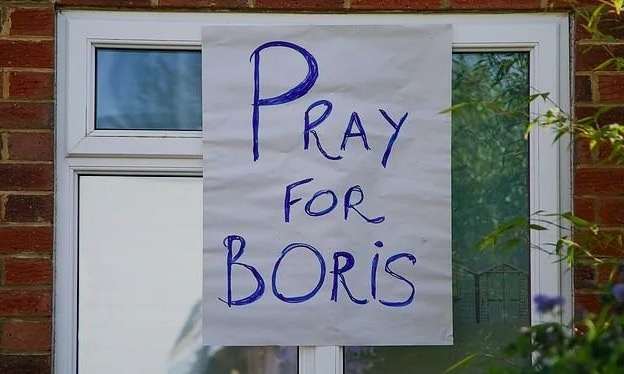 PRAY
FOR
BORiS